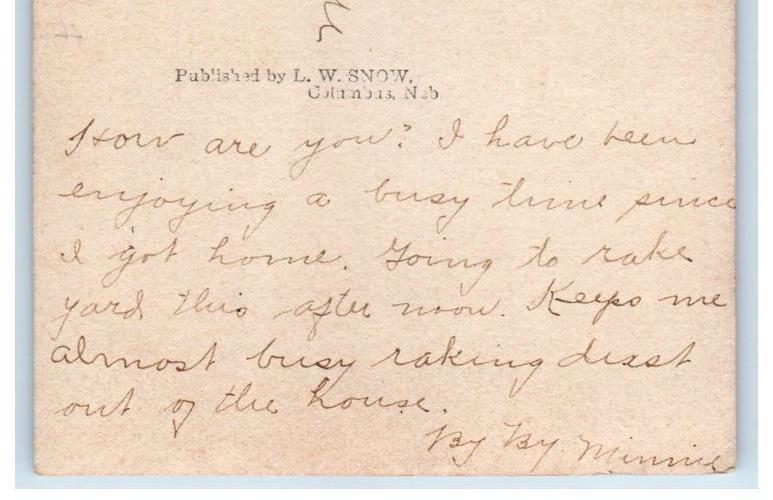 Published by L. W. SNOW,
Columbus, Neb.
How are you? I have been
enjoying a busy time since
I got home. Going to rake
yard this after noon. Keeps me
almost busy raking dust
out of the house.
By By Minnie